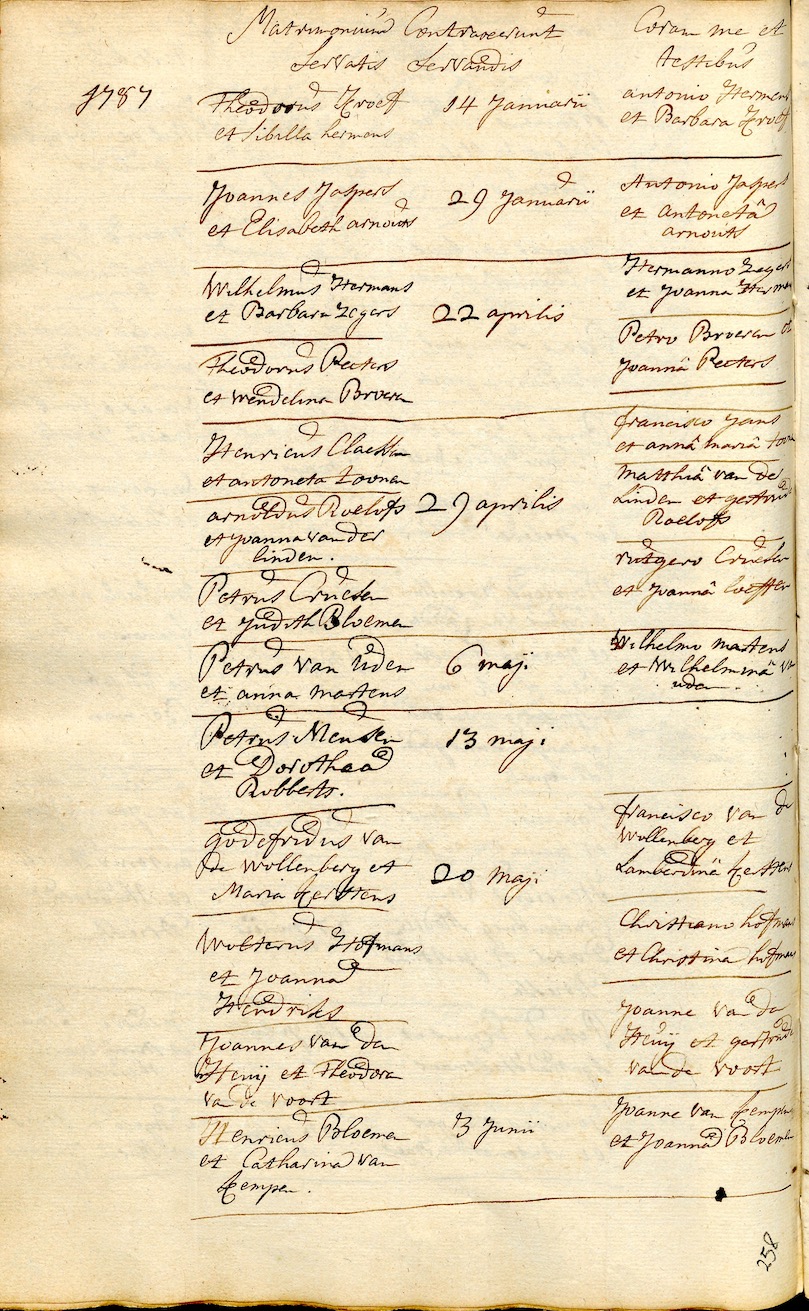 Matrimoniu͞m Contraxerunt Coram me et
servatis servandis testibus
1787
Theodorus Kroef 14 Januarii antonio Hermens
et Sibilla hermens et Barbara Kroef
Joannes Jaspers 29 Januarii Antonio Jaspers
et Elisabeth arnouts et antonetâ
arnouts
Wilhelmus Hermans Hermanno Zegers
et Barbara Zegers 22 aprilis et Joanna
Theodorus Peeters Petro Broeren et
et Wendelina Broeren Joannâ Peeters
Henricus Claessen francisco Jans
et antoneta Toonen et annâ mariâ
arnoldus Roelofs 29 aprilis Matthiâ van der
et Joanna van der Linden et
linden. Roelofs
Petrus Cruesen rutgero
et Judith Bloemen et Joannâ
Petrus van uden 6 maji Wilhelmo martens
et anna martens et Wilhelminâ
uden.
Petrus Mensen 13 maji
et Dorothea
Robberts.
godefridus van francisco van de
de Wollenberg et 20 Maji Wollenberg et
Maria Kerstens Lamberdinâ Kerstens
Wolterus Hofmans Christiano hofmans
et Joanna et Christina hofmans
Hendriks
Joannes van den Joanne van den
Heuij et Theodora Heuij et gertrude
van de voort van de voort
Henricus Bloemen 3 Junii Joanne van Kempen
et Catharina van et Joanna Bloemen
Kempen.
258